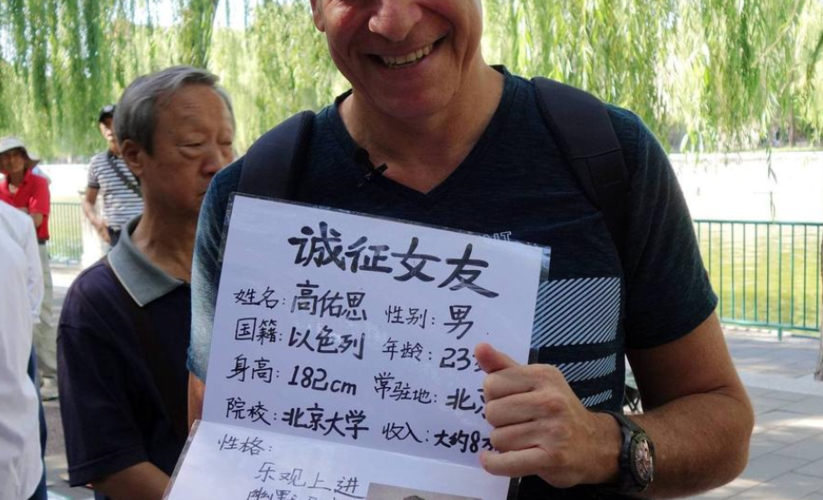 诚征女友
姓名: 高佑思 性别: 男
国籍: 以色列 年龄: 23
身高: 182cm 常驻地: 北
院校: 北京大学 收入: 大约8
性格:
乐观上进